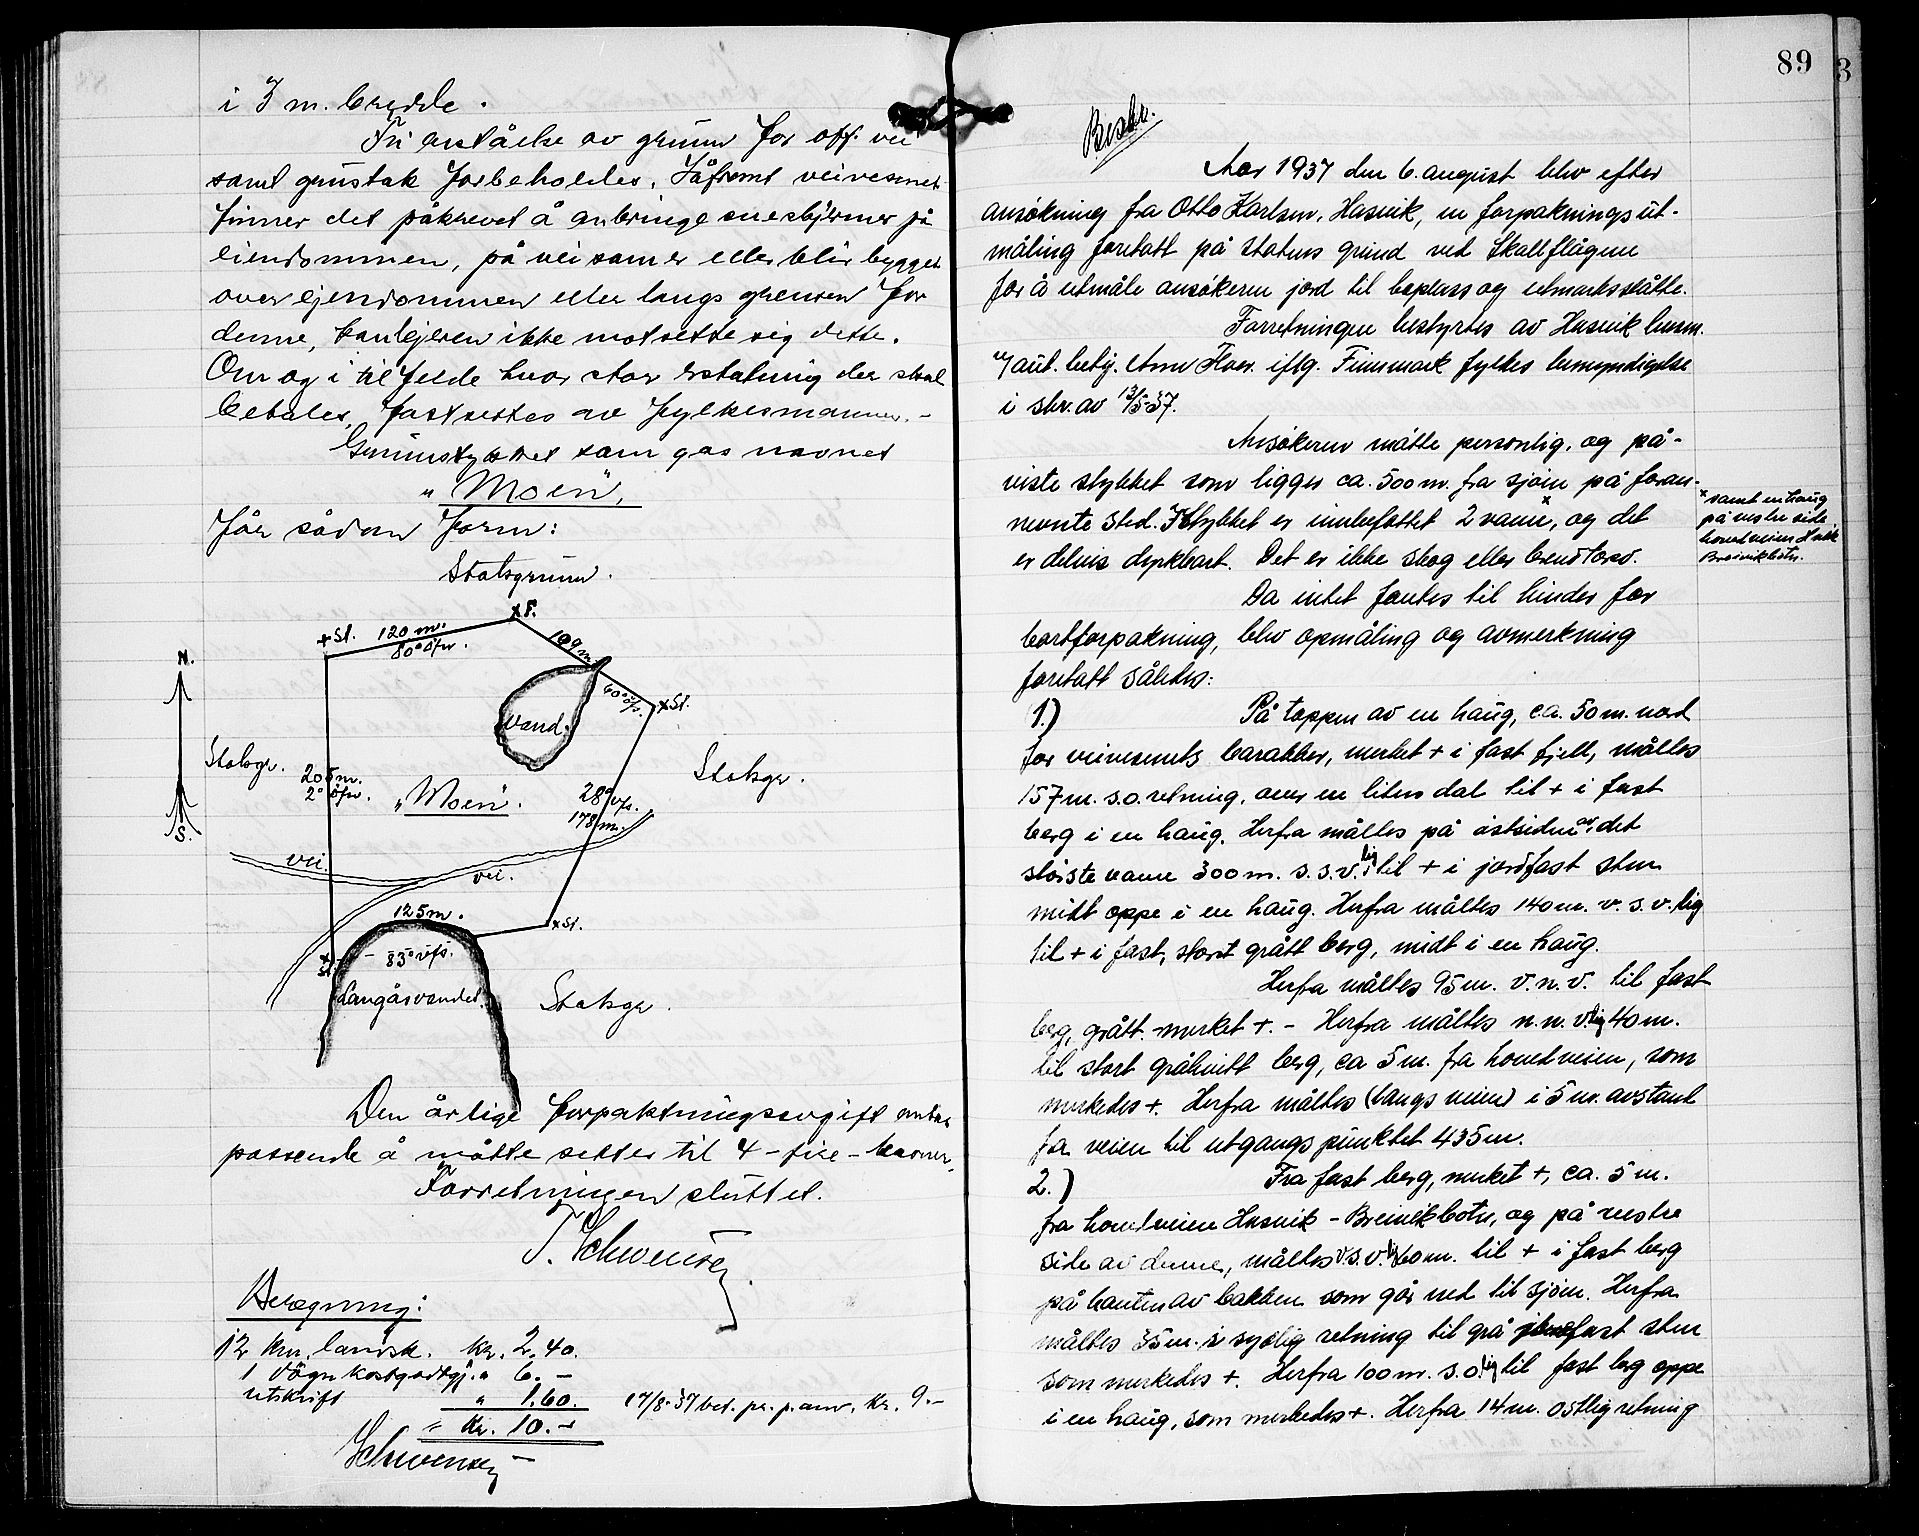 i 3 m. bredde.
Fri avståelse av grunn for off. vei
samt grustak forbeholdes. Såfremt veivesenet
finner det påkrevet å anbringe sneskjermer på
eiendommen, på vei som er eller blir bygget
over ejendommen eller langs grensen for
denne, kan ejeren ikke motsette sig dette.
Om og i tilfelde hvor stor erstatning der skal
betales, fastsettes av fylkesmannen. -
Grunnstykket som gas navnet
"Moen",
får sådan form:
Statsgrunn.
+ St. 120 m. x F.
80° öfn. 109 m.
N.
60° öfs. x St.
Vand.
Statsgr. Statsgr.
205 m.
2° öfn. "Moen". 28° vfs.
178 m.
S.
vei. vei.
125 m. x St.
83° vfs.
x St.
Langåsvandet. Statsgr.
Den årlige forpaktningsavgift antas
passende å måtte settes til 4 - fire - kroner.
Forretningen sluttet.
T. Schwensen.
Beregning:
12 km. landsk. kr. 2.40.
1 døgn kostgodtgj. " 6. -
utskrift " 1.60. 17/8-37 bet. pr. p.anv. kr. 9.-
" Kr. 10.-
Schwensen
89
3
Beskr.
Aar 1937 den 6. august blev efter
ansökning fra Otto Karlsen, Hasvik, en forpaknings ut-
måling foretatt på statens grund ved Skallflågene
for å utmåle ansökeren jord til beplass og utmarksslåtte.
Forretningen bestyrtes av Hasvik herm.
v/ aut. betj. Arne Hoer. iflg. Finnmark fylkes bemyndigelse
i skr. av 13/5-37.
Ansökeren måtte personlig, og på-
viste stykket som ligger ca. 500 m. fra sjöen på foran-
nevnte sted. I stykket er innbefattet 2 vann x, og det
x samt en haug
på vestre side
hovedveien Hasvik
Breivikbotn.
er delvis dyrkbart. Det er ikke skog eller brendtorv.
Da intet fantes til hinder for
bortforpakning, blev opmåling og avmerkning
foretatt således:
1.) På toppen av en haug, ca. 50 m. nord
for veivesenets barakker, merket + i fast fjell, måltes
157 m. s.o. retning, over en liten dal til + i fast
berg i en haug. Herfra måltes på östsiden av det
störste vann 300 m. s.s.v.lig til + i jordfast sten
midt oppe i en haug. Herfra måltes 140 m. v.s.v.lig
til + i fast, stort grått berg, midt i en haug.
Herfra måltes 95 m. v.n.v. til fast
berg, grått - merket +. - Herfra måltes n.n.v.lig 40 m.
til stort gråhvitt berg, ca 5 m. fra hovedveien, som
merkedes +. Herfra måltes (langs veien) i 5 m. avstand
fra veien til utgangspunktet 435 m.
2.) Fra fast berg, merket +, ca. 5 m.
fra hovedveien Hasvik - Breivikbotn, og på vestre
side av denne, måltes v.s.v.lig 60 m. til + i fast berg
på kanten av bakken som går ned til sjöen. Herfra
måltes 35 m. i sydlig retning til grå fast sten
som merkedes +. Herfra 100 m. s.o.lig til fast berg oppe
i en haug, som merkedes +. Herfra 14 m. ostlig retning